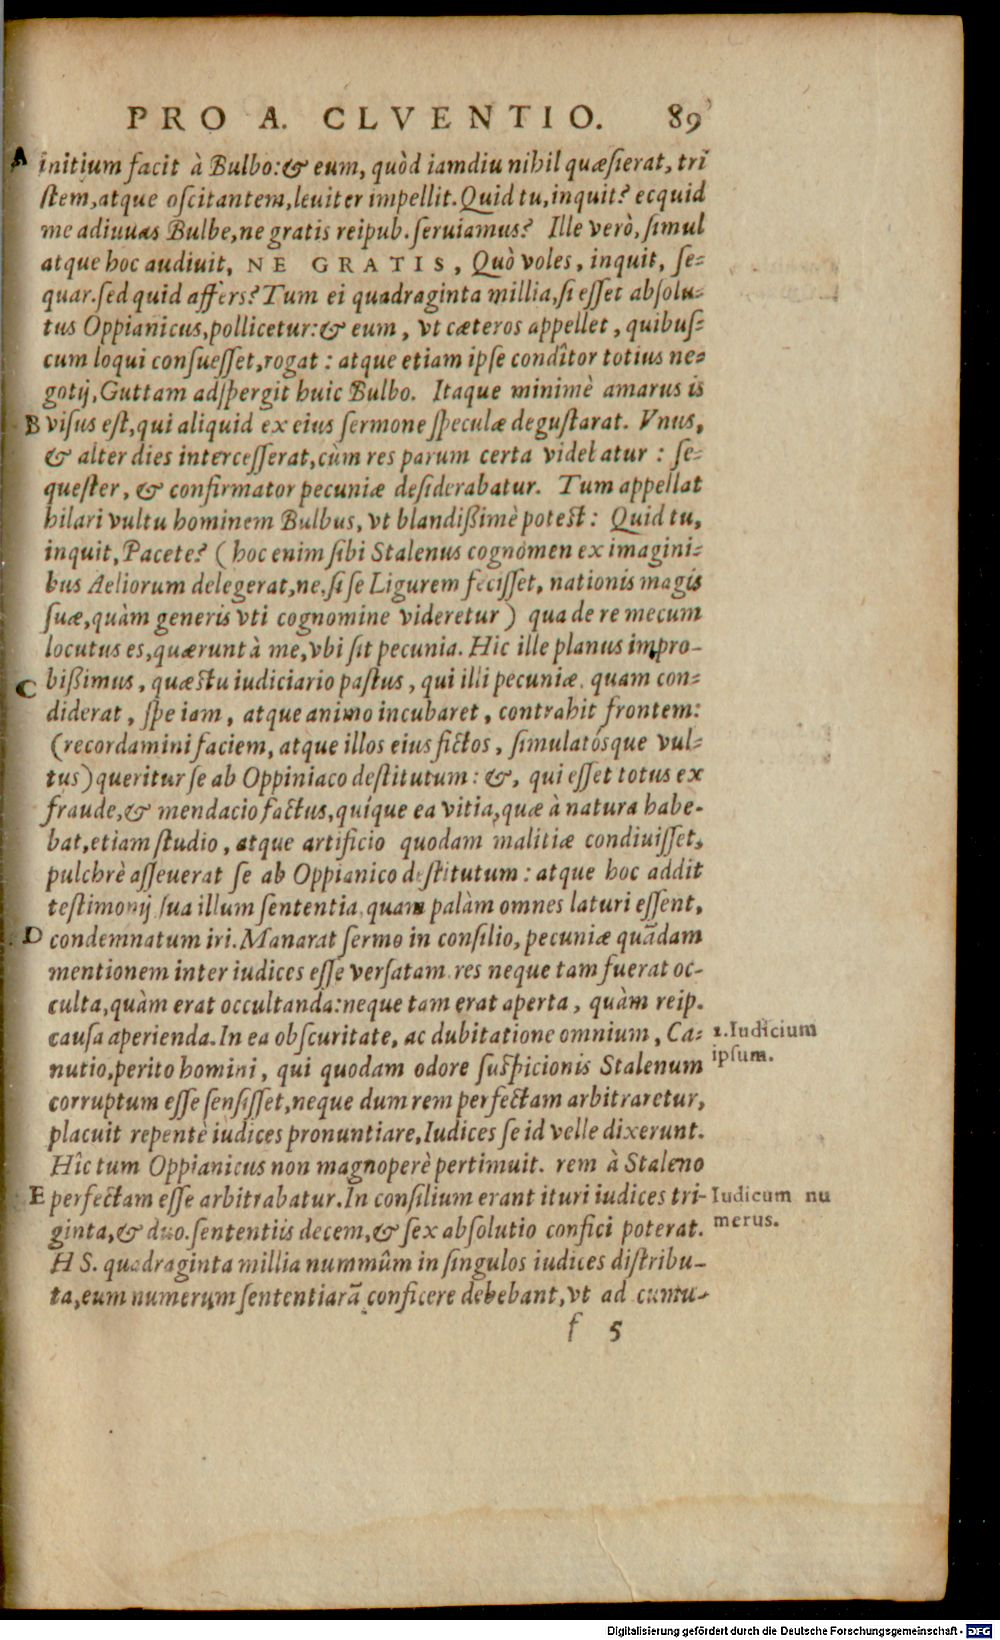 PRO A. CLVENTIO. 89
A initium facit à Bulbo: & eum, quòd iamdiu nihil quæsierat, tri
stem, atque oscitantem, leuiter impellit. Quid tu, inquit? ecquid
me adiuuas Bulbe, ne gratis reipub. seruiamus? Ille verò, simul
atque hoc audiuit, NE GRATIS, Quò voles, inquit, se=
quar. sed quid affers? Tum ei quadraginta millia, si esset absolu=
tus Oppianicus, pollicetur: & eum, vt cæteros appellet, quibus=
cum loqui consuesset, rogat: atque etiam ipse condîtor totius ne=
gotij, Guttam adspergit huic Bulbo. Itaque minimè amarus is
B visus est, qui aliquid ex eius sermone speculæ degustarat. Vnus,
& alter dies intercesserat, cùm res parum certa videbatur: se=
quester, & confirmator pecuniæ desiderabatur. Tum appellat
hilari vultu hominem Bulbus, vt blandißimè potest: Quid tu,
inquit, Pæte? (hoc enim sibi Stalenus cognomen ex imagini=
bus Aeliorum delegerat, ne, si se Ligurem fecisset, nationis magis
suæ, quàm generis vti cognomine videretur) qua de re mecum
locutus es, quærunt à me, vbi sit pecunia. Hic ille planus impro-
C bißimus, quæstu iudiciario pastus, qui illi pecuniæ, quam con=
diderat, spe iam, atque animo incubaret, contrahit frontem:
(recordamini faciem, atque illos eius fictos, simulatósque vul=
tus) queritur se ab Oppiniaco destitutum: &, qui esset totus ex
fraude, & mendacio factus, quíque ea vitia, quæ à natura habe-
bat, etiam studio, atque artificio quodam malitiæ condiuisset,
pulchrè asseuerat se ab Oppianico destitutum: atque hoc addit
testimonij, sua illum sententia, quam palàm omnes laturi essent,
D condemnatum iri. Manarat sermo in consilio, pecuniæ quãdam
mentionem inter iudices esse versatam. res neque tam fuerat oc-
culta, quàm erat occultanda: neque tam erat aperta, quàm reip.
causa aperienda. In ea obscuritate, ac dubitatione omnium, Ca=
1. Iudicium
nutio, perito homini, qui quodam odore suspicionis Stalenum
ipsum.
corruptum esse sensisset, neque dum rem perfectam arbitraretur,
placuit repentè iudices pronuntiare, Iudices se id velle dixerunt.
Hîc tum Oppianicus non magnoperè pertimuit. rem à Staleno
E perfectam esse arbitrabatur. In consilium erant ituri iudices tri-
Iudicum nu
ginta, & duo. sententiis decem, & sex absolutio confici poterat.
merus.
HS. quadraginta millia nummûm in singulos iudices distribu-
ta, eum numerum sententiarũ conficere debebant, vt ad cumu-
f 5
Digitalisierung gefördert durch die Deutsche Forschungsgemeinschaft - DFG